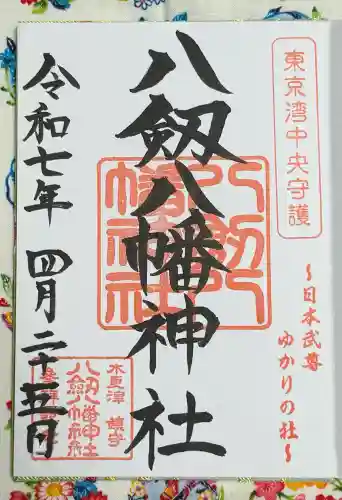 東京湾中央守護
～日本武尊
ゆかりの社～
八剱八幡神社
八剱八幡神社
木更津 鎮守
八剱八幡神社
令和七年 四月二十五日